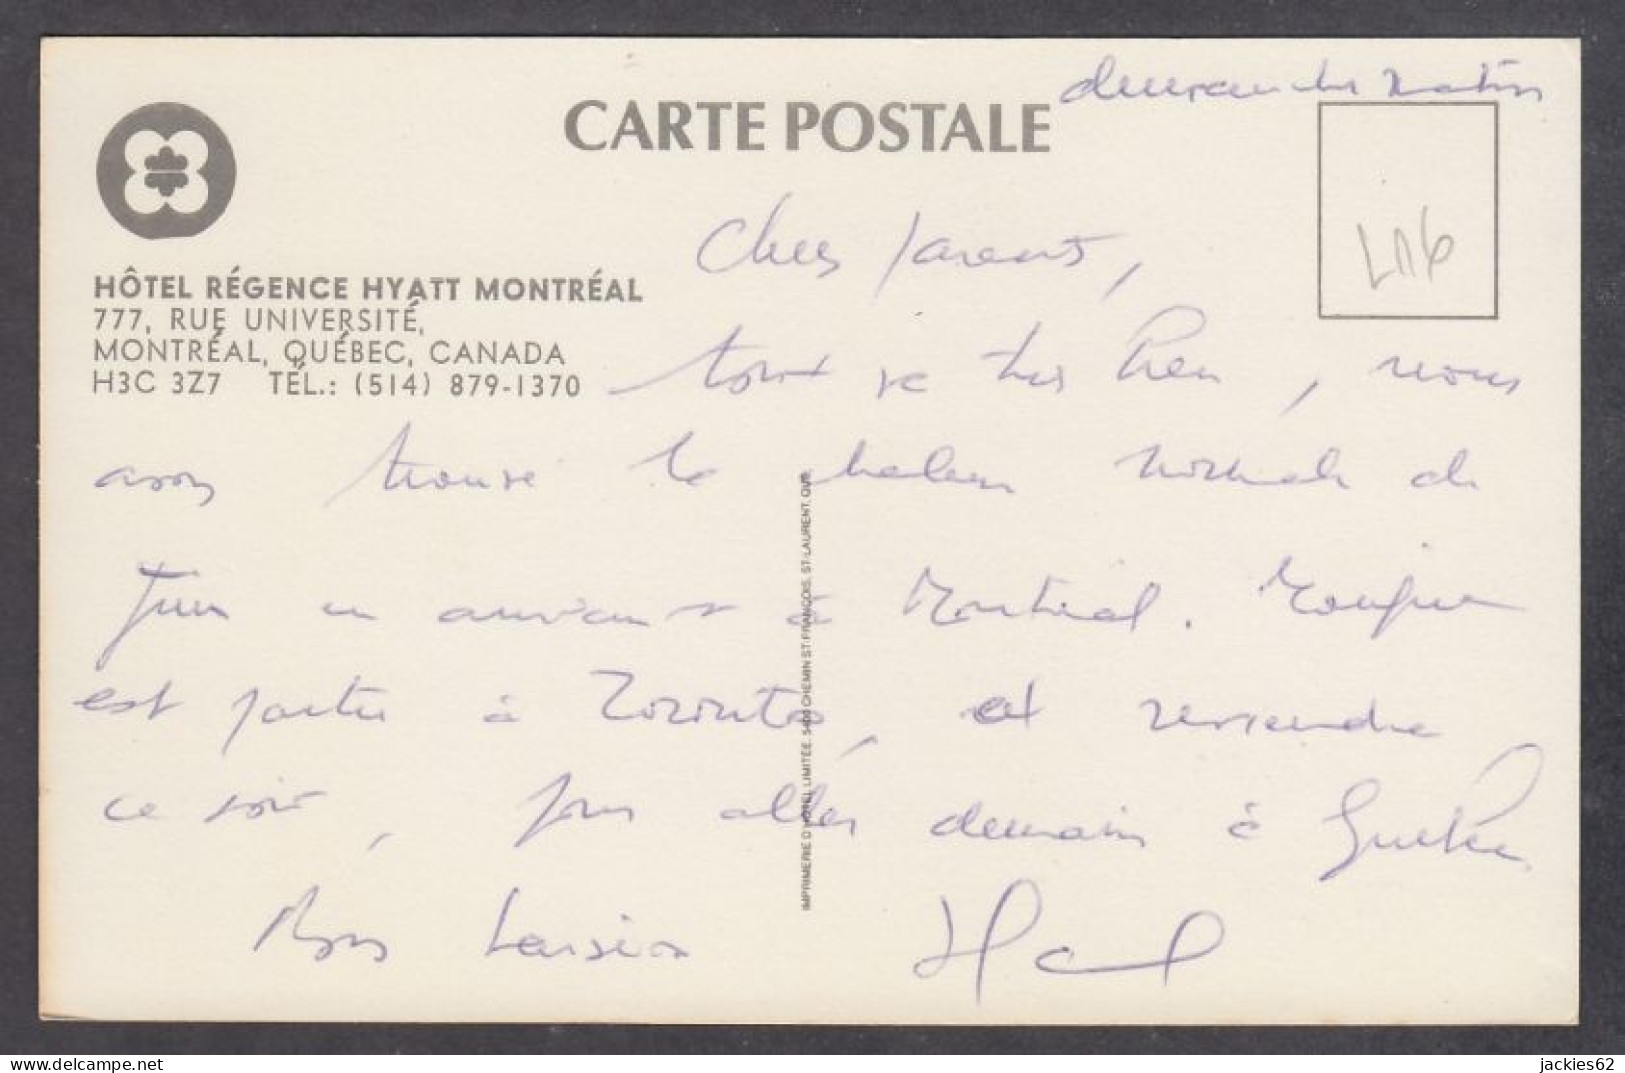 dimanche matin
CARTE POSTALE
Chers parents,
HÔTEL RÉGENCE HYATT MONTRÉAL
777, RUE UNIVERSITÉ,
MONTRÉAL, QUÉBEC, CANADA
H3C 3Z7 TÉL.: (514) 879-1370
tout va très bien, nous
avons trouvé la chaleur normale de
Juin en arrivant à Montréal.
est partie à Toronto, et reviendra
ce soir, pour aller demain à Québec
Bons baisers
IMPRIMERIE D'HÔTEL LIMITÉE, 5400 CHEMIN ST-FRANÇOIS, ST-LAURENT, QUÉ.
jackies62